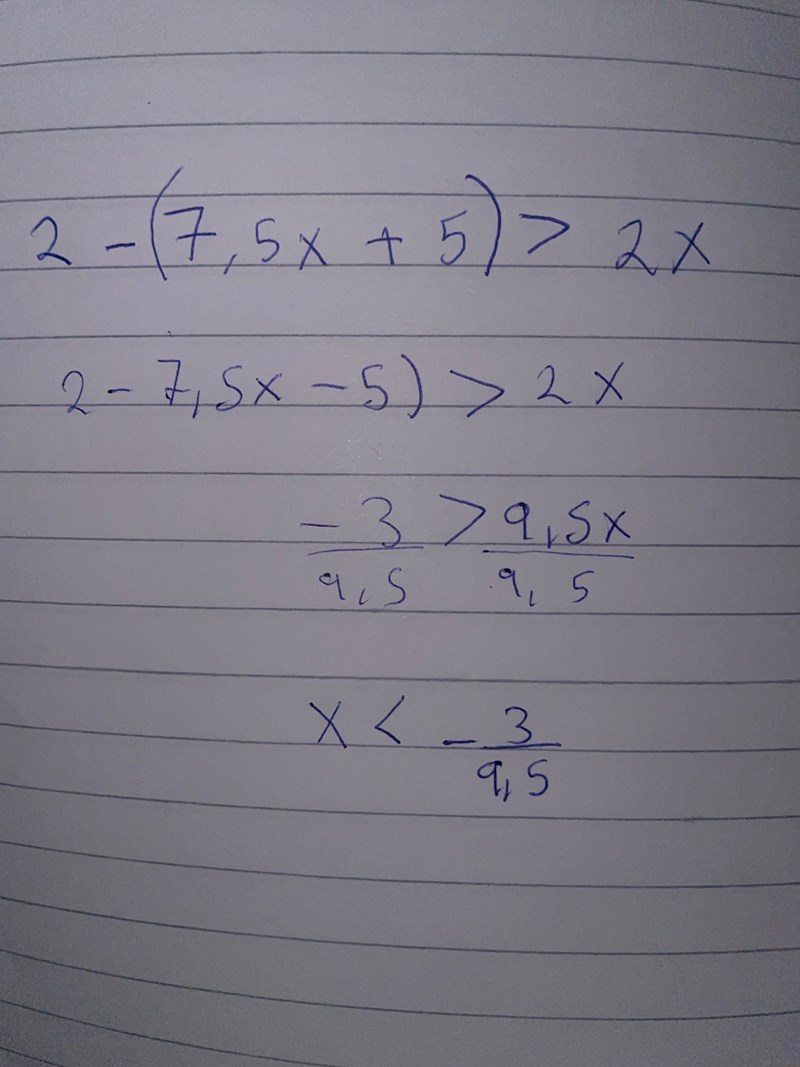 2 - (7,5x + 5) > 2x
2 - 7,5x - 5) > 2x
- 3 > 9,5x
9,5 9,5
x < - 3
9,5